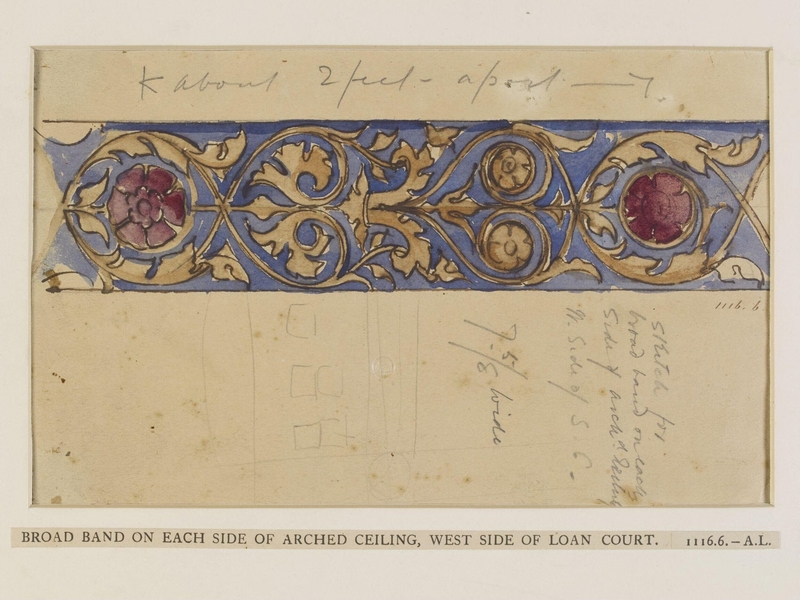 K about 2 feet apart
1116. 6
Sketch for
broad band on each
Side of arch'd Ceiling
W. Side of S. C.
7 5/8 wide
BROAD BAND ON EACH SIDE OF ARCHED CEILING, WEST SIDE OF LOAN COURT. 1116.6.–A.L.